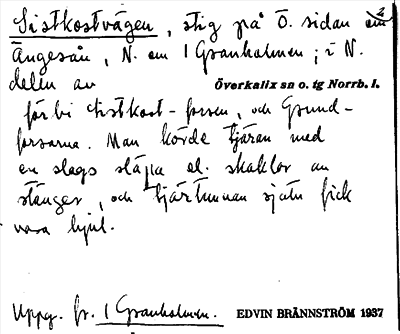 Sistkostvägen, stig på Ö. sidan om
Ängesån, N. om 1 Granholmen; i N.
delen av
Överkalix sn o. tg Norrb. l.
förbi Sistkost-forsen, och Grund-
forsarna. Man körde tjäran med
en slags släpa el. skaklor av
stänger, och tjärtunnan själv fick
vara hjul.
Uppg. fr. 1 Granholmen.
EDVIN BRÄNNSTRÖM 1937